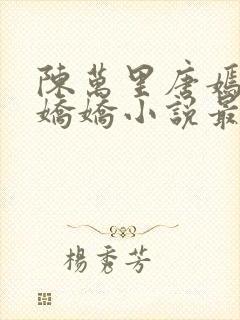 陳萬里唐嫣
嬌嬌小說最
楊秀芳